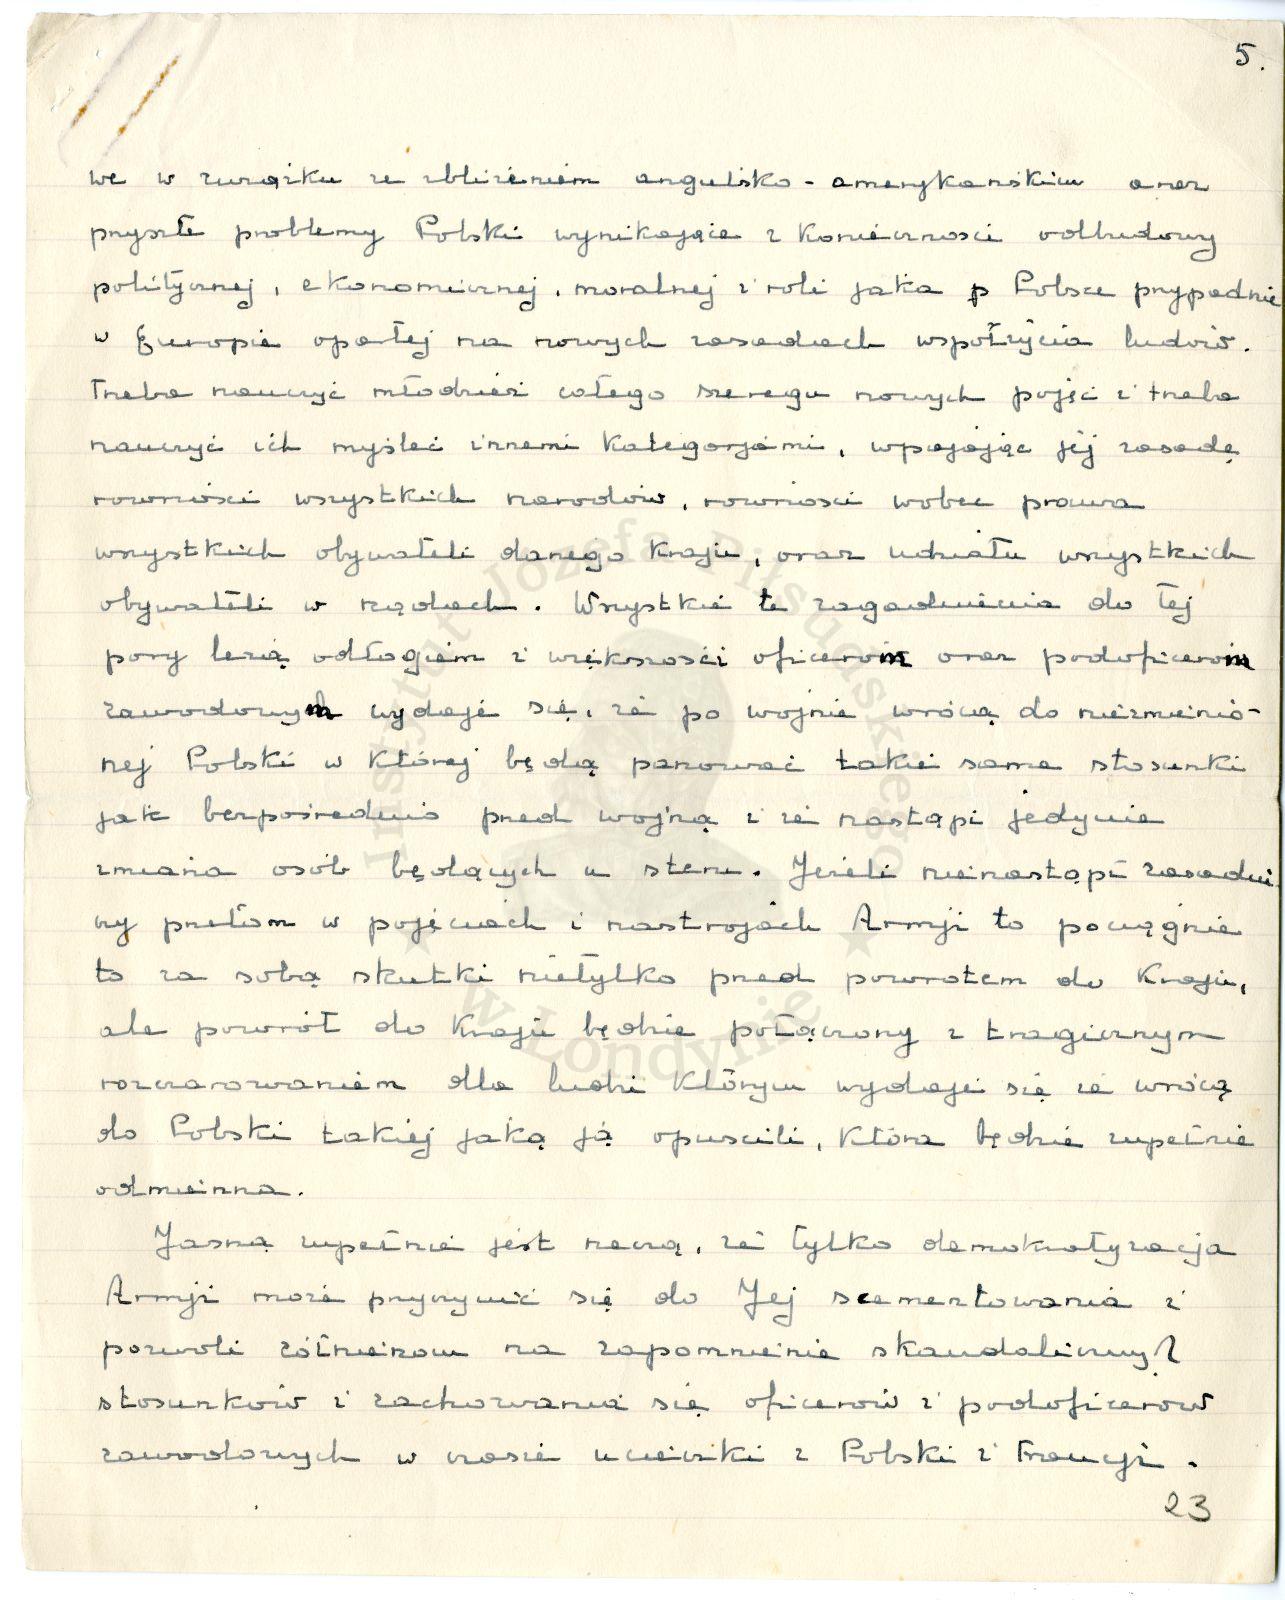 5.
we w związku ze zbliżeniem angielsko-amerykańskim oraz
przyszłe problemy Polski wynikające z konieczności odbudowy
politycznej, ekonomicznej, moralnej i roli jaka p Polsce przypadnie
w Europie opartej na nowych zasadach współżycia ludów.
Trzeba nauczyć młodzież całego szeregu nowych pojęć i trzeba
nauczyć ich myśleć innemi kategorjami, wpajając jej zasadę
rowności wszystkich narodów, rowności wobec prawa
wszystkich obywateli danego kraju, oraz udziału wszystkich
obywateli w rządach. Wszystkie te zagadnienia do tej
pory leżą odłogiem i większości oficerom oraz podoficerom
zawodowym wydaje się, że po wojnie wrócą do niezmienio-
nej Polski w której będą panować takie same stosunki
jak bezpośrednio przed wojną i że nastąpi jedynie
zmiana osób będących u steru. Jeżeli nienastąpi zasadni
czy przełom w pojęciach i nastrojach Armji to pociągnie
to za sobą skutki nietylko przed powrotem do Kraju,
ale powrót do Kraju będzie połączony z tragicznym
rozczarowaniem dla ludzi którym wydaje się że wrócą
do Polski takiej jaką ją opuscili, która będzie zupełnie
odmienna.
Jasną zupełnie jest rzeczą, że tylko demokratyzacja
Armji może przyczynić się do Jej scementowania i
pozwoli żołnierzom na zapomnienie skandalicznych
stosunków i zachowania się oficerów i podoficerów
zawodowych w czasie ucieczki z Polski i Francji.
23
Instytut Józefa Piłsudskiego
w Londynie